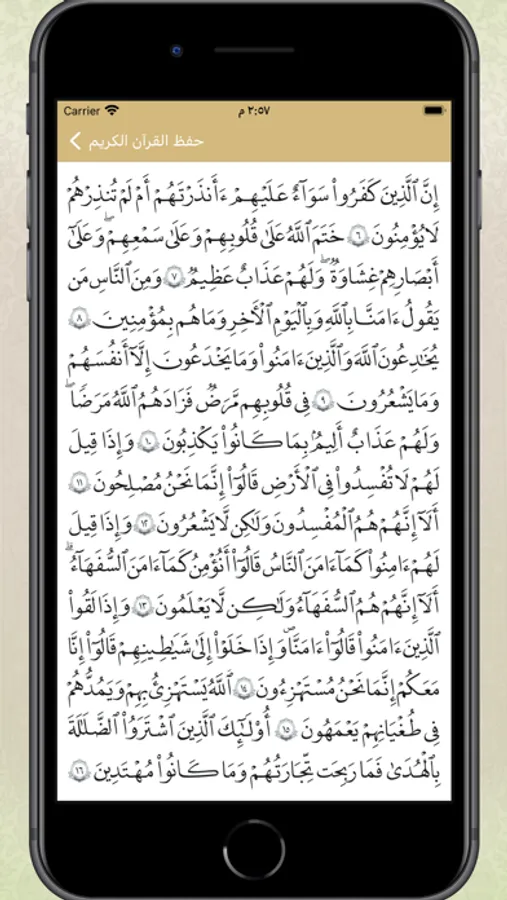 Carrier ٢:٥٧ م
حفظ القرآن الكريم
إِنَّ ٱلَّذِينَ كَفَرُوا۟ سَوَآءٌ عَلَيْهِمْ ءَأَنذَرْتَهُمْ أَمْ لَمْ تُنذِرْهُمْ
لَا يُؤْمِنُونَ ٦ خَتَمَ ٱللَّهُ عَلَىٰ قُلُوبِهِمْ وَعَلَىٰ سَمْعِهِمْ ۖ وَعَلَىٰٓ
أَبْصَٰرِهِمْ غِشَٰوَةٌ ۖ وَلَهُمْ عَذَابٌ عَظِيمٌ ٧ وَمِنَ ٱلنَّاسِ مَن
يَقُولُ ءَامَنَّا بِٱللَّهِ وَبِٱلْيَوْمِ ٱلْءَاخِرِ وَمَا هُم بِمُؤْمِنِينَ ٨
يُخَٰدِعُونَ ٱللَّهَ وَٱلَّذِينَ ءَامَنُوا۟ وَمَا يَخْدَعُونَ إِلَّآ أَنفُسَهُمْ
وَمَا يَشْعُرُونَ ٩ فِى قُلُوبِهِم مَّرَضٌ فَزَادَهُمُ ٱللَّهُ مَرَضًا ۖ
وَلَهُمْ عَذَابٌ أَلِيمٌۢ بِمَا كَانُوا۟ يَكْذِبُونَ ١٠ وَإِذَا قِيلَ
لَهُمْ لَا تُفْسِدُوا۟ فِى ٱلْأَرْضِ قَالُوٓا۟ إِنَّمَا نَحْنُ مُصْلِحُونَ ١١
أَلَآ إِنَّهُمْ هُمُ ٱلْمُفْسِدُونَ وَلَٰكِن لَّا يَشْعُرُونَ ١٢ وَإِذَا قِيلَ
لَهُمْ ءَامِنُوا۟ كَمَآ ءَامَنَ ٱلنَّاسُ قَالُوٓا۟ أَنُؤْمِنُ كَمَآ ءَامَنَ ٱلسُّفَهَآءُ ۗ
أَلَآ إِنَّهُمْ هُمُ ٱلسُّفَهَآءُ وَلَٰكِن لَّا يَعْلَمُونَ ١٣ وَإِذَا لَقُوا۟
ٱلَّذِينَ ءَامَنُوا۟ قَالُوٓا۟ ءَامَنَّا وَإِذَا خَلَوْا۟ إِلَىٰ شَيَٰطِينِهِمْ قَالُوٓا۟ إِنَّا
مَعَكُمْ إِنَّمَا نَحْنُ مُسْتَهْزِءُونَ ١٤ ٱللَّهُ يَسْتَهْزِئُ بِهِمْ وَيَمُدُّهُمْ
فِى طُغْيَٰنِهِمْ يَعْمَهُونَ ١٥ أُو۟لَٰٓئِكَ ٱلَّذِينَ ٱشْتَرَوُا۟ ٱلضَّلَٰلَةَ
بِٱلْهُدَىٰ فَمَا رَبِحَت تِّجَٰرَتُهُمْ وَمَا كَانُوا۟ مُهْتَدِينَ ١٦